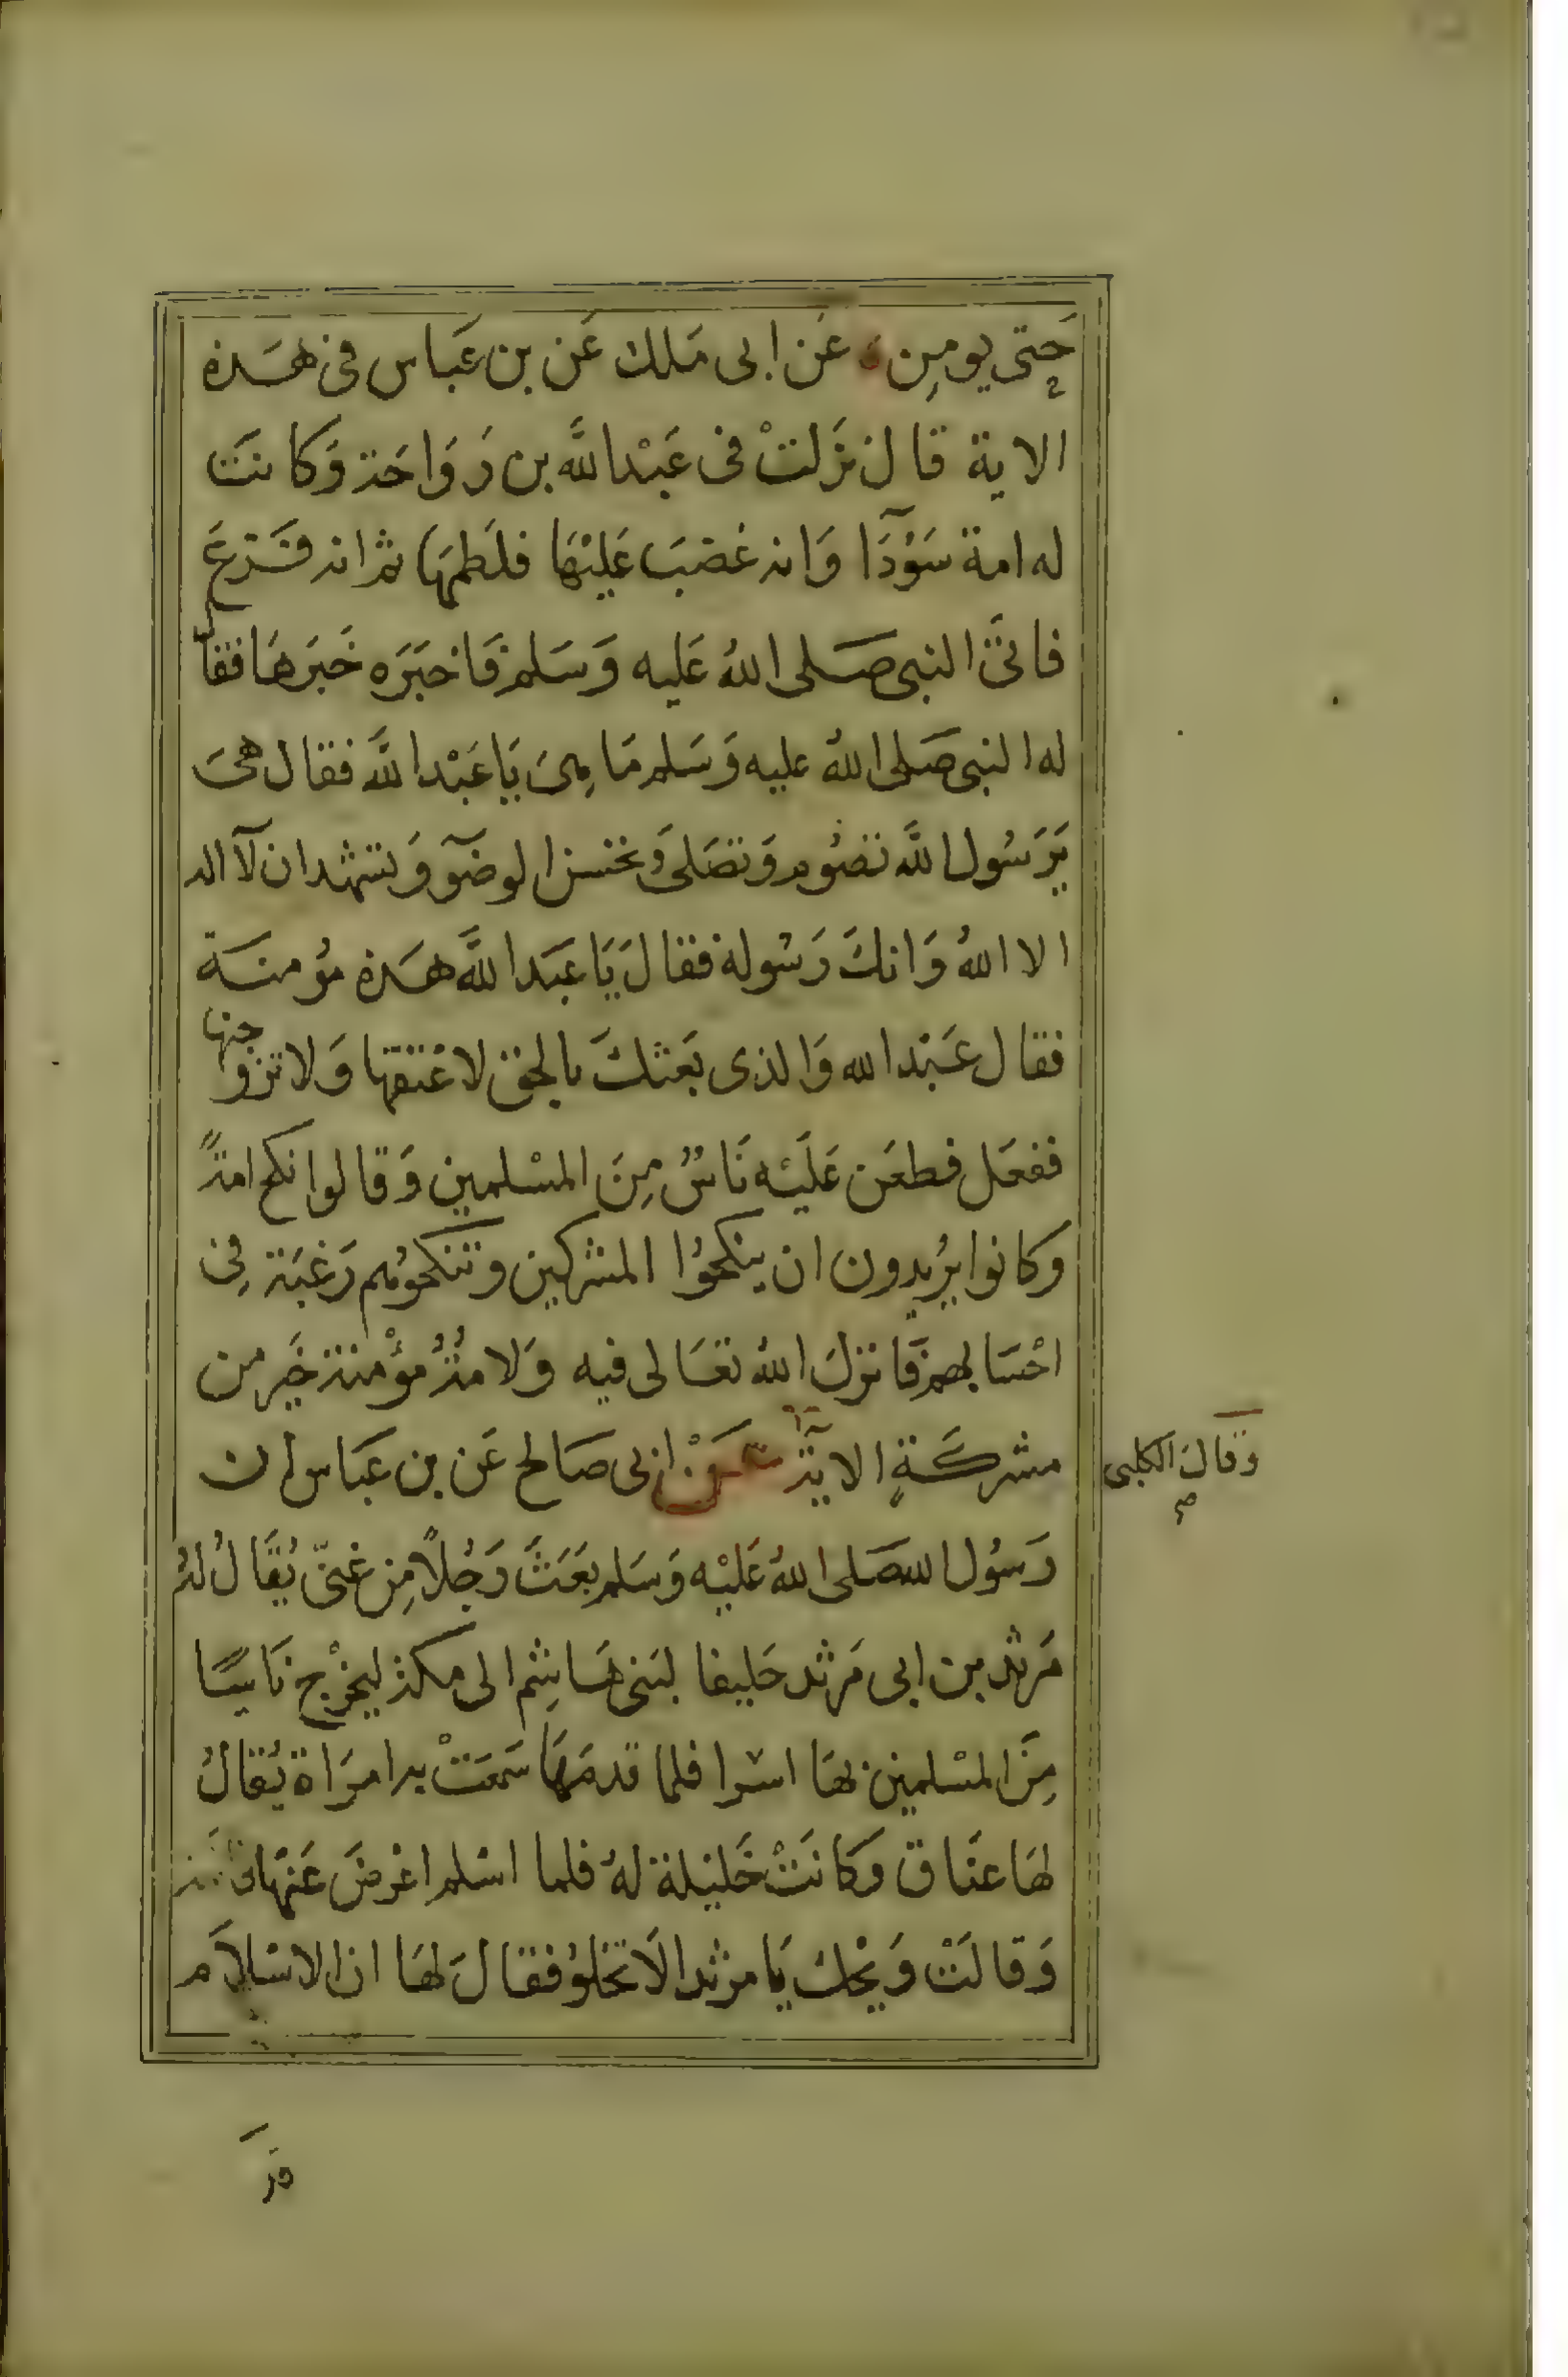 حَتى يومِن عَن ابى مَلك عَن بن عَباس فى هَذه
الاية قال نَزَلتْ فى عَبْد اللَّه بن رَوَاحَة وَكانَت
له امة سَوْدَآ وَانه غضبَ عَليْهَا فلطمهَا ثم انه فَزِعَ
فاتىَ النبى صَلى اللهُ عَليه وَسَلم فَاخبَرَه خَبَرهَا فقال
له النبى صَلى اللهُ عليه وَسَلم مَا هِىَ يَا عَبْد اللَّه فقال هىَ
يَرَسُول اللَّه تصُوم وَتصَلى وَتحْسن الوضوَ وَتشهد ان لآ اله
الا اللهُ وَانكَ رَسُوله فقالَ يَا عَبَد اللَّه هَذه مُؤمنَة
فقال عَبْد الله وَالذى بَعَثكَ بالحق لاعْتقها وَلاتزوجنها
ففعَل فطعَن عَلَيْه نَاسٌ مِنَ المسْلمين وَقالوا نكح امةً
وَكانوا يرُيدون ان ينكحوُا المشركين وَتنكحوُهم رَغبَة فِى
احْسَابهم فَانزلَ اللهُ تعَالى فيه وَلامةُ مؤْمنة خَير من
مشركَةٍ الايَة عَنْ ابى صَالح عَن بن عَبَاس ان
وَقالَ الكلبى
رَسُول الله صَلى اللهُ عَليْه وَسَلم بَعَثَ رَجُلاً مِن غنىّ يُقَالُ لهُ
مَرثد بن ابى مَرثد حَليفا لبَنى هَاشِم الى مكة ليخرْج نَاسًا
مِنَ المسْلمين بهَا اسْرا فلما قدمَهَا سَمَعَتْ به امرَاة يُقالُ
لهَا عنَاق وَكانَتْ خَليْلة لهُ فلما اسْلم اعْرضَ عَنْهَا
وَقالَتْ وَيْحكَ يَا مرثد الَا تخْلوُ فقالَ لهَا ان الاسْلاَم